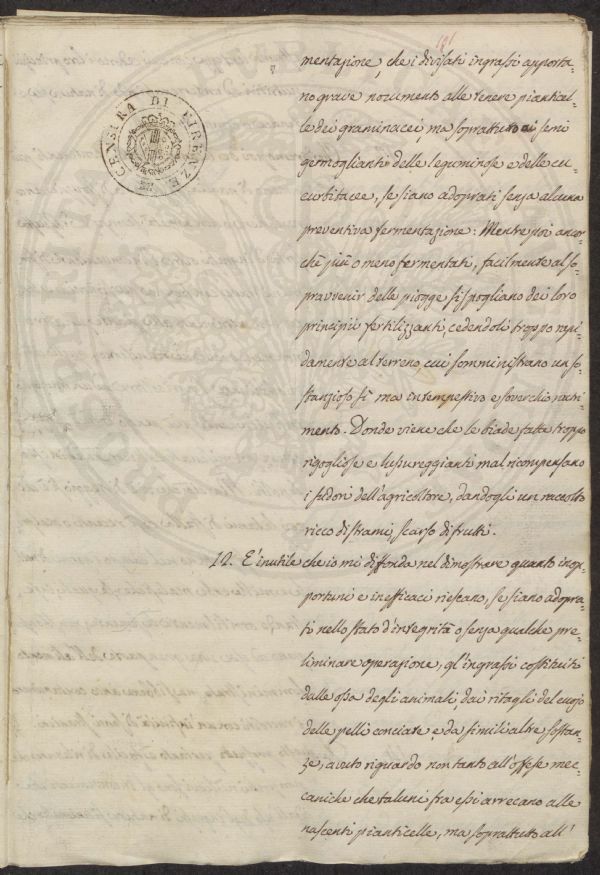 181
CENSURA DI FIRENZE
mentazione, che i divisati ingrassi apporta-
no grave nocumento alle tenere pianticel-
le dei graminacei, ma soprattutto ai semi
germoglianti delle leguminose e delle cu-
curbitacee, se siano adoprati senza alcuna
preventiva fermentazione: Mentre poi ancor-
chè più o meno fermentati, facilmente al so-
pravvenir delle piogge si spogliano dei loro
principii fertilizzanti, cedendoli troppo rapi-
damente al terreno, cui somministrano un so-
stanzioso sì ma intempestivo e soverchio nutri-
mento. Donde viene che le biade fatte troppo
rigogliose e lussureggianti mal ricompensano
i sudori dell'agricoltore, dandogli un raccolto
ricco di strami, scarso di frutti.
12. È inutile che io mi diffonda nel dimostrare quanto inop-
portuni e inefficaci riescano, se siano adopra-
ti nello stato d'integrità o senza qualche pre-
liminare operazione, gl'ingrassi costituiti
dalle ossa degli animali, dai ritagli del cuojo
delle pelli conciate, e da simili altre sostan-
ze, avuto riguardo non tanto all'offese mec-
caniche che taluni fra essi arrecano alle
nascenti pianticelle, ma soprattutto all'